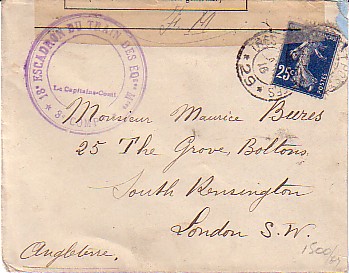 18e ESCADRON DU TRAIN DES EQes Mres
Le Capitaine-Comt
25c
POSTES
* 29 *
Monsieur Maurice Beeres
25 The Grove, Boltons,
South Kensington
London S.W.
Angleterre.